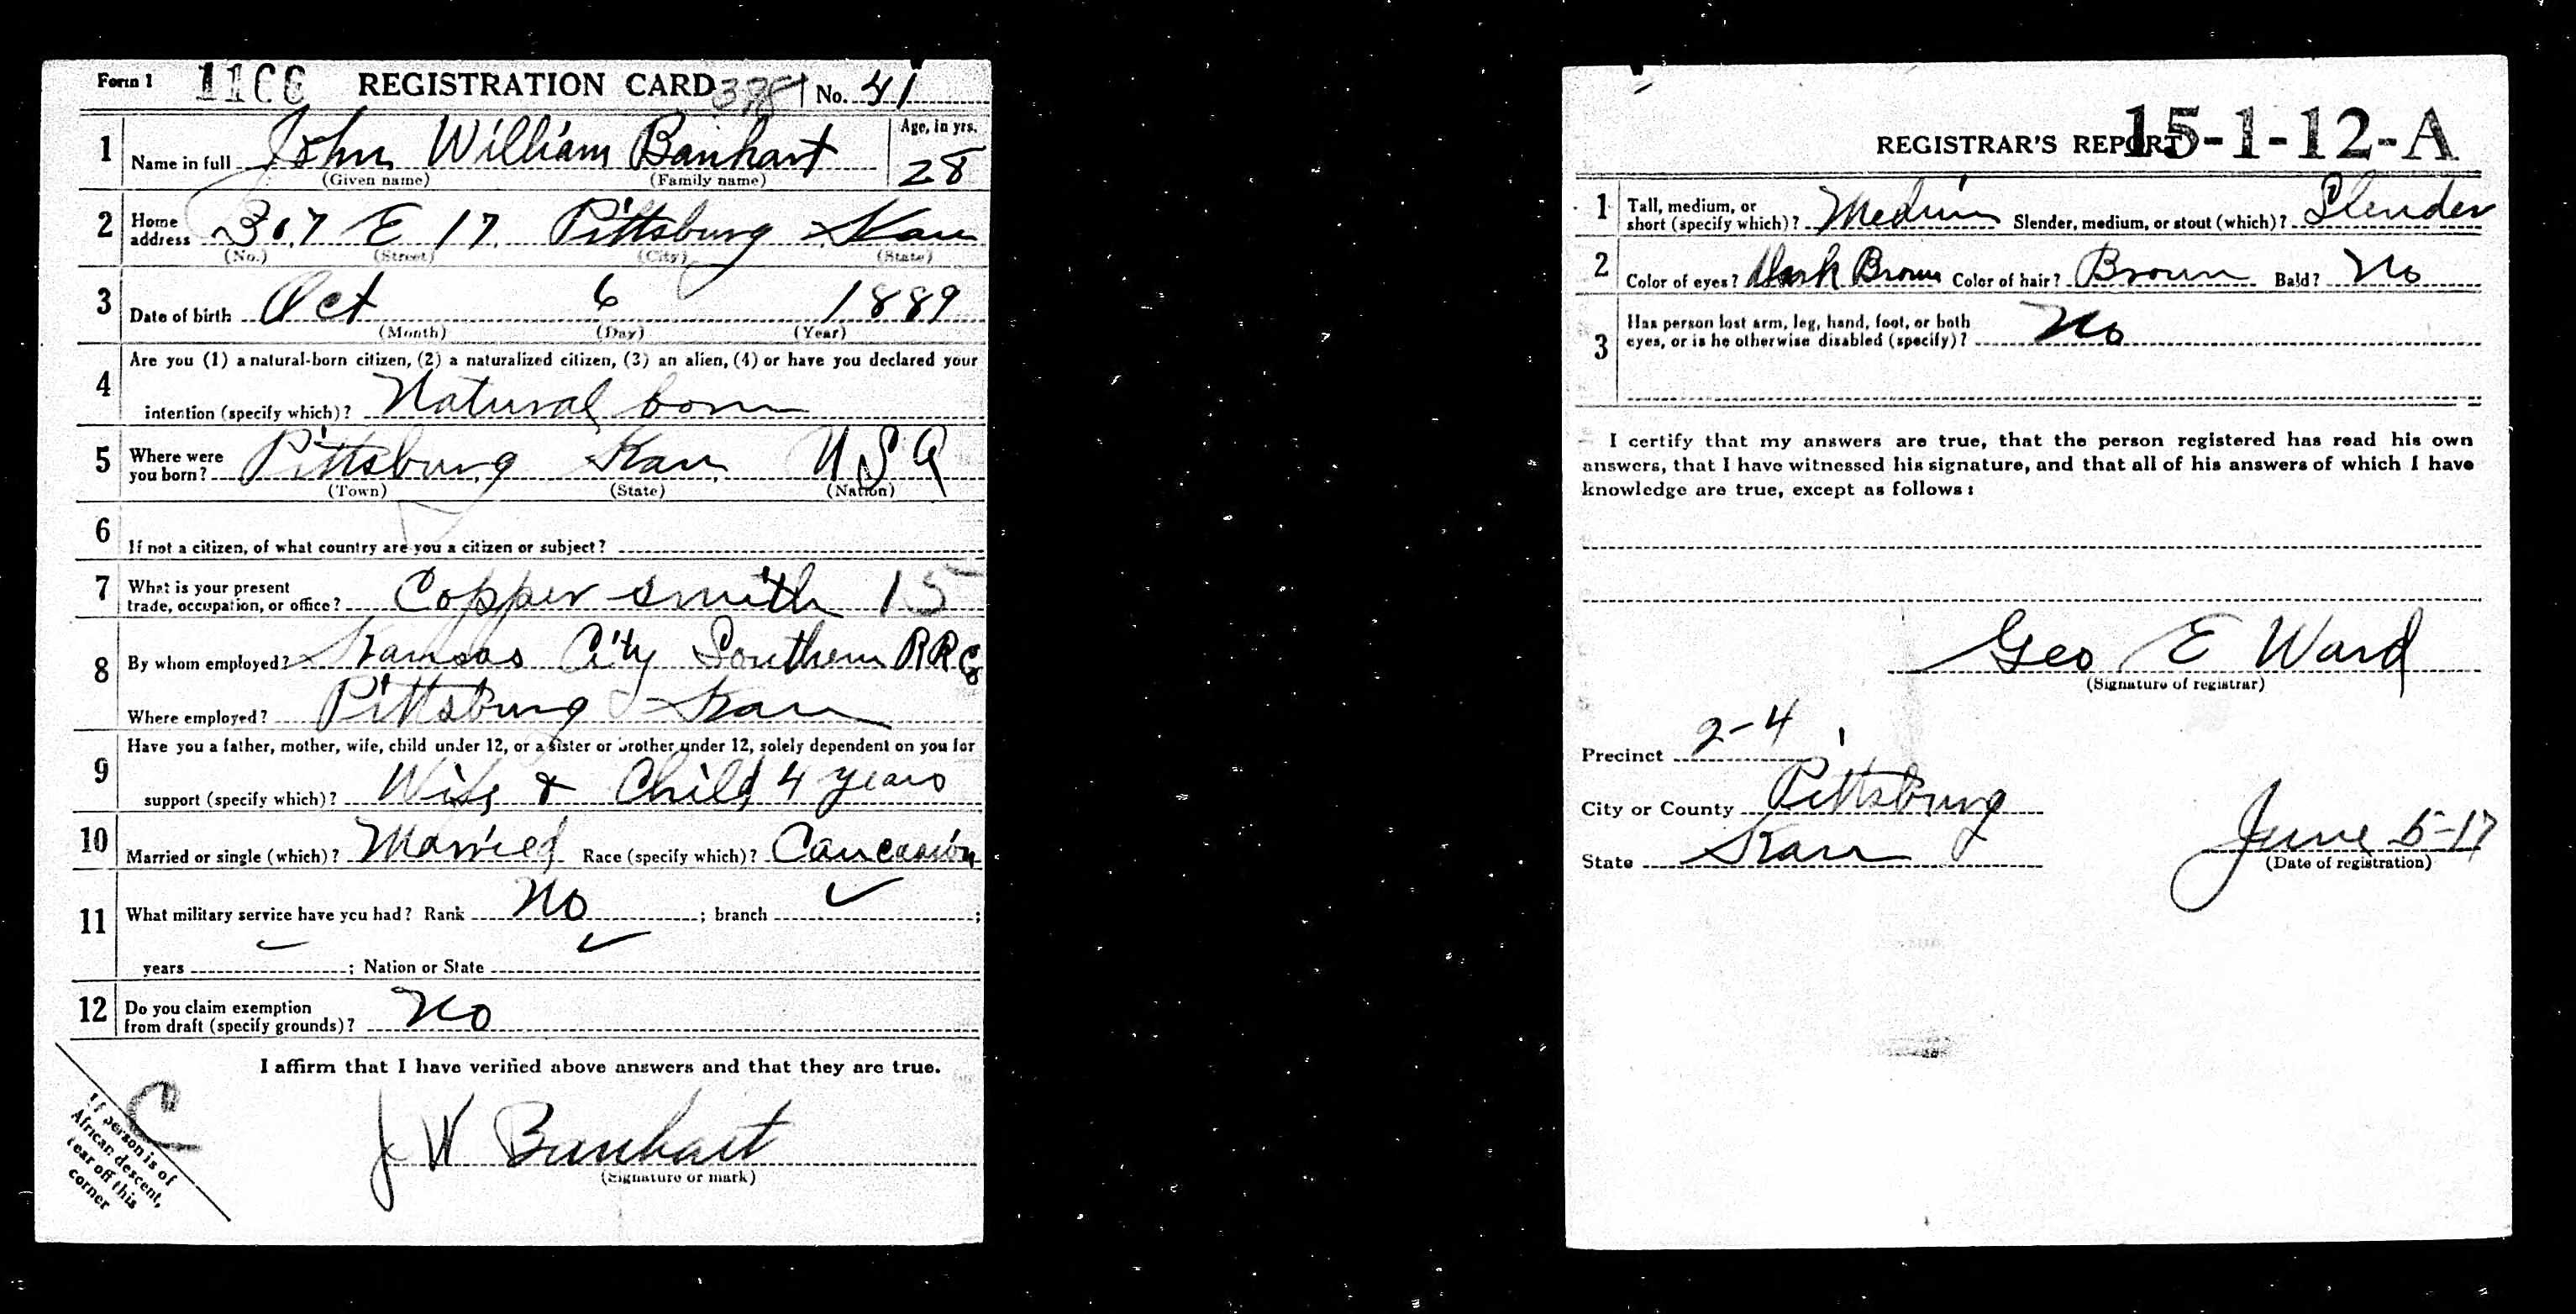 Form 1 1166 REGISTRATION CARD No. 41
1 Name in full John William Banhart Age, in yrs. 28
(Given name) (Family name)
2 Home address 307 E 17 Pittsburg Kan
(No.) (Street) (City) (State)
3 Date of birth Oct 6 1889
(Month) (Day) (Year)
4 Are you (1) a natural-born citizen, (2) a naturalized citizen, (3) an alien, (4) or have you declared your
intention (specify which)? Natural born
5 Where were you born? Pittsburg Kan, USA
(Town) (State) (Nation)
6 If not a citizen, of what country are you a citizen or subject?
7 What is your present
trade, occupation, or office? Copper smith 15
8 By whom employed? Kansas City Southern RR Co
Where employed? Pittsburg Kan
9 Have you a father, mother, wife, child under 12, or a sister or brother under 12, solely dependent on you for
support (specify which)? Wife & Child 4 years
10 Married or single (which)? Married Race (specify which)? Caucasion
11 What military service have you had? Rank No ; branch ;
years ; Nation or State
12 Do you claim exemption
from draft (specify grounds)? No
I affirm that I have verified above answers and that they are true.
J W Banhart
(Signature or mark)
C
If person is of
African descent,
tear off this
corner
15-1-12-A
REGISTRAR'S REPORT
1 Tall, medium, or
short (specify which)? Medium Slender, medium, or stout (which)? Slender
2 Color of eyes? Dark Brown Color of hair? Brown Bald? No
3 Has person lost arm, leg, hand, foot, or both
eyes, or is he otherwise disabled (specify)? No
I certify that my answers are true, that the person registered has read his own
answers, that I have witnessed his signature, and that all of his answers of which I have
knowledge are true, except as follows:
Geo E Ward
(Signature of registrar)
Precinct 2-4
City or County Pittsburg
State Kan
June 5-17
(Date of registration)